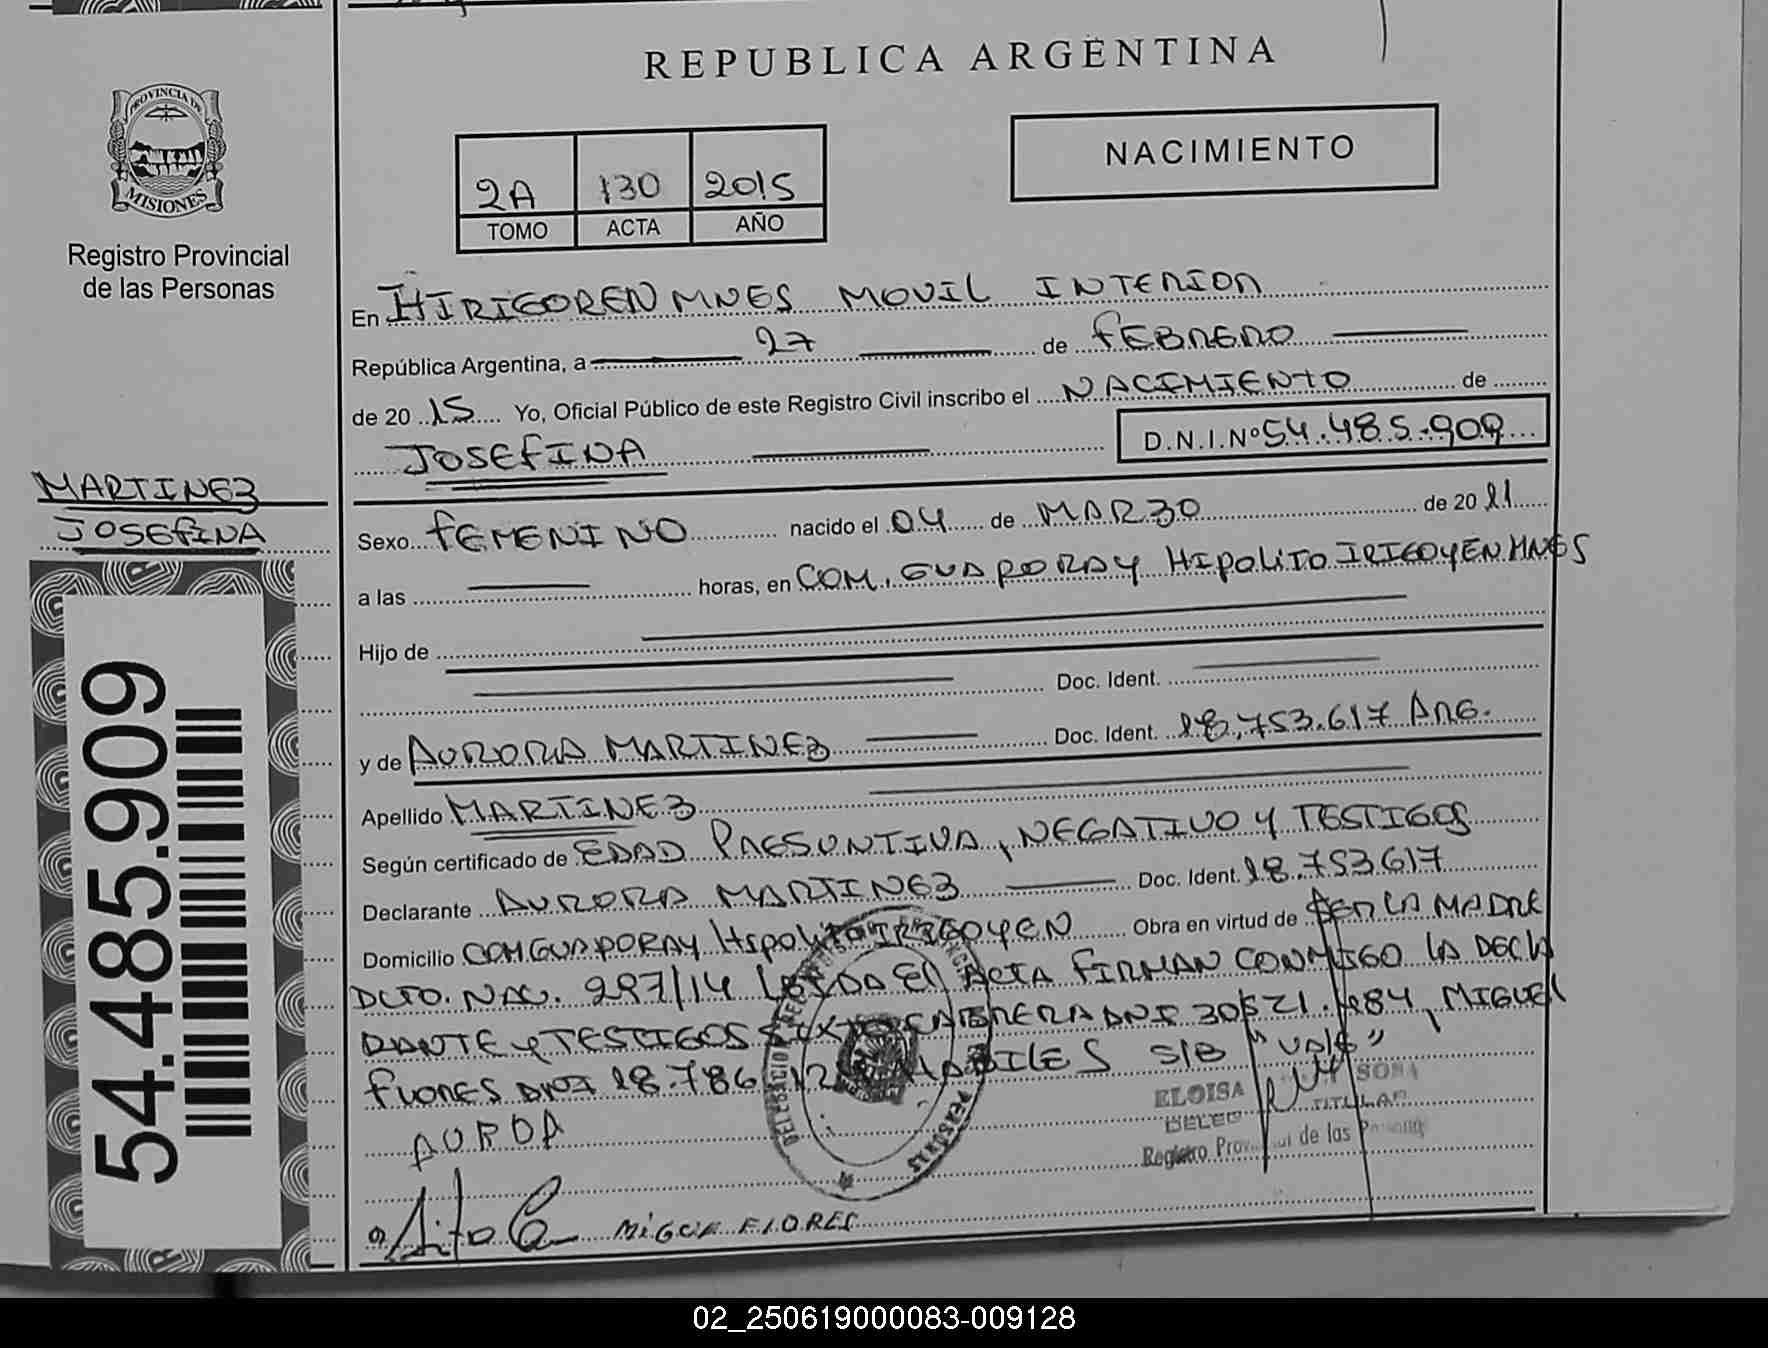 REPUBLICA ARGENTINA
PROVINCIA DE
MISIONES
Registro Provincial
de las Personas
NACIMIENTO
2A 130 2015
TOMO ACTA AÑO
En HIRIGOREN MNES MOVIL INTERIOR
República Argentina, a 27 de FEBRERO
de 20 15 Yo, Oficial Público de este Registro Civil inscribo el NACIMIENTO de
JOSEFINA D.N.I. Nº 54.485.909
MARTINEZ
JOSEFINA
Sexo FEMENINO nacido el 04 de MARZO de 20 11
a las horas, en COM. GUAPORAY HIPOLITO IRIGOYEN MNES
Hijo de
Doc. Ident.
y de AURORA MARTINEZ Doc. Ident. 18.753.617 ARG.
Apellido MARTINEZ
Según certificado de EDAD PRESUNTIVA, NEGATIVO Y TESTIGOS
Declarante AURORA MARTINEZ Doc. Ident. 18.753.617
Domicilio COM GUAPORAY HIPOLITO IRIGOYEN Obra en virtud de SER LA MADRE
DCTO. NAC. 297/14 LEIDA EL ACTA FIRMAN CONMIGO LA DECLA
RANTE Y TESTIGOS SIXTO CABRERA DNI 30521.484, MIGUEL
FLORES DNI 18.786 HABILES S/B "VALE"
AURORA
MiGUE FLORES
ELOISA SOSA
DELEG TITULAR
Registro Provincial de las Personas
54.485.909
02_250619000083-009128